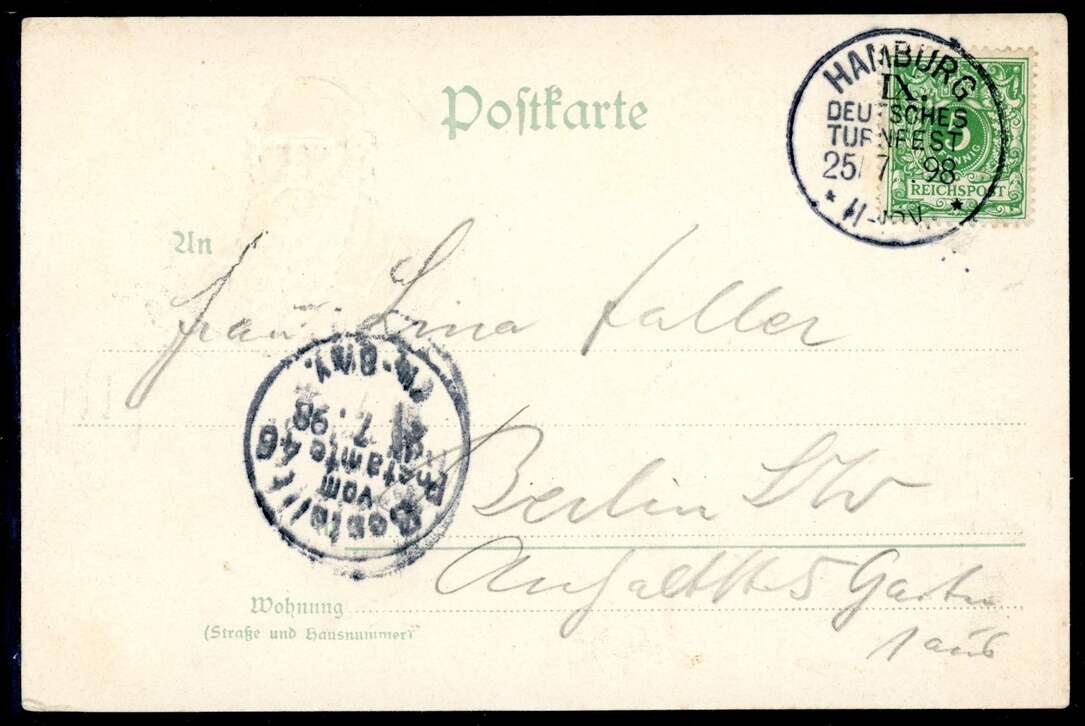 Postkarte
HAMBURG
IX.
DEUTSCHES
TURNFEST
25/7 .98
5
PFENNIG
REICHSPOST
An
Frau Lina Faller
Berlin SW
5 Garten
Bestellt
vom
Postamte 46
7. 98
Wohnung
(Straße und Hausnummer)